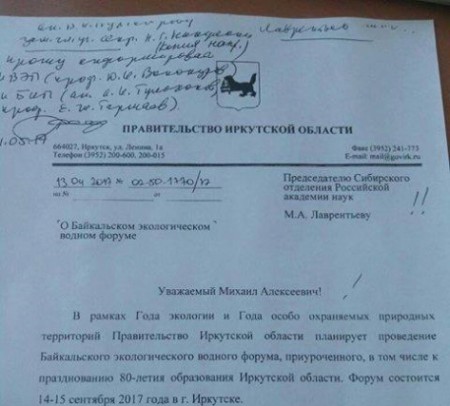 Лаврентьев
Прошу информировать
ПРАВИТЕЛЬСТВО ИРКУТСКОЙ ОБЛАСТИ
664027, Иркутск, ул. Ленина, 1а
Телефон (3952) 200-600, 200-015
Факс (3952) 241-773
E-mail: mail@govirk.ru
13 04 2017 № 02-50-1770/17
на № от
Председателю Сибирского
отделения Российской
академии наук
М.А. Лаврентьеву
!!
"О Байкальском экологическом
водном форуме"
Уважаемый Михаил Алексеевич!
!
В рамках Года экологии и Года особо охраняемых природных
территорий Правительство Иркутской области планирует проведение
Байкальского экологического водного форума, приуроченного, в том числе к
празднованию 80-летия образования Иркутской области. Форум состоится
14-15 сентября 2017 года в г. Иркутске.